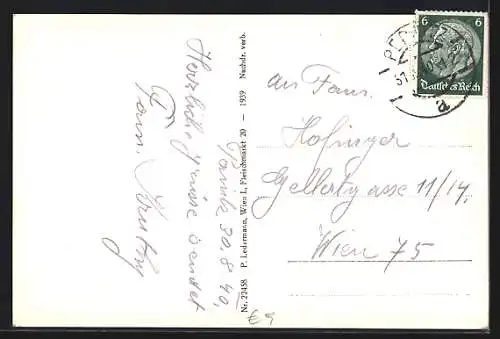 Pernitz 30.8.40.
Herzliche Grüsse sendet
Fam.
Nr. 22458 P. Ledermann, Wien I, Fleischmarkt 20 — 1939 Nachdr. verb.
6 6
Deutsches Reich
An Fam.
Hofinger
Gellertgasse 11/14.
Wien 75